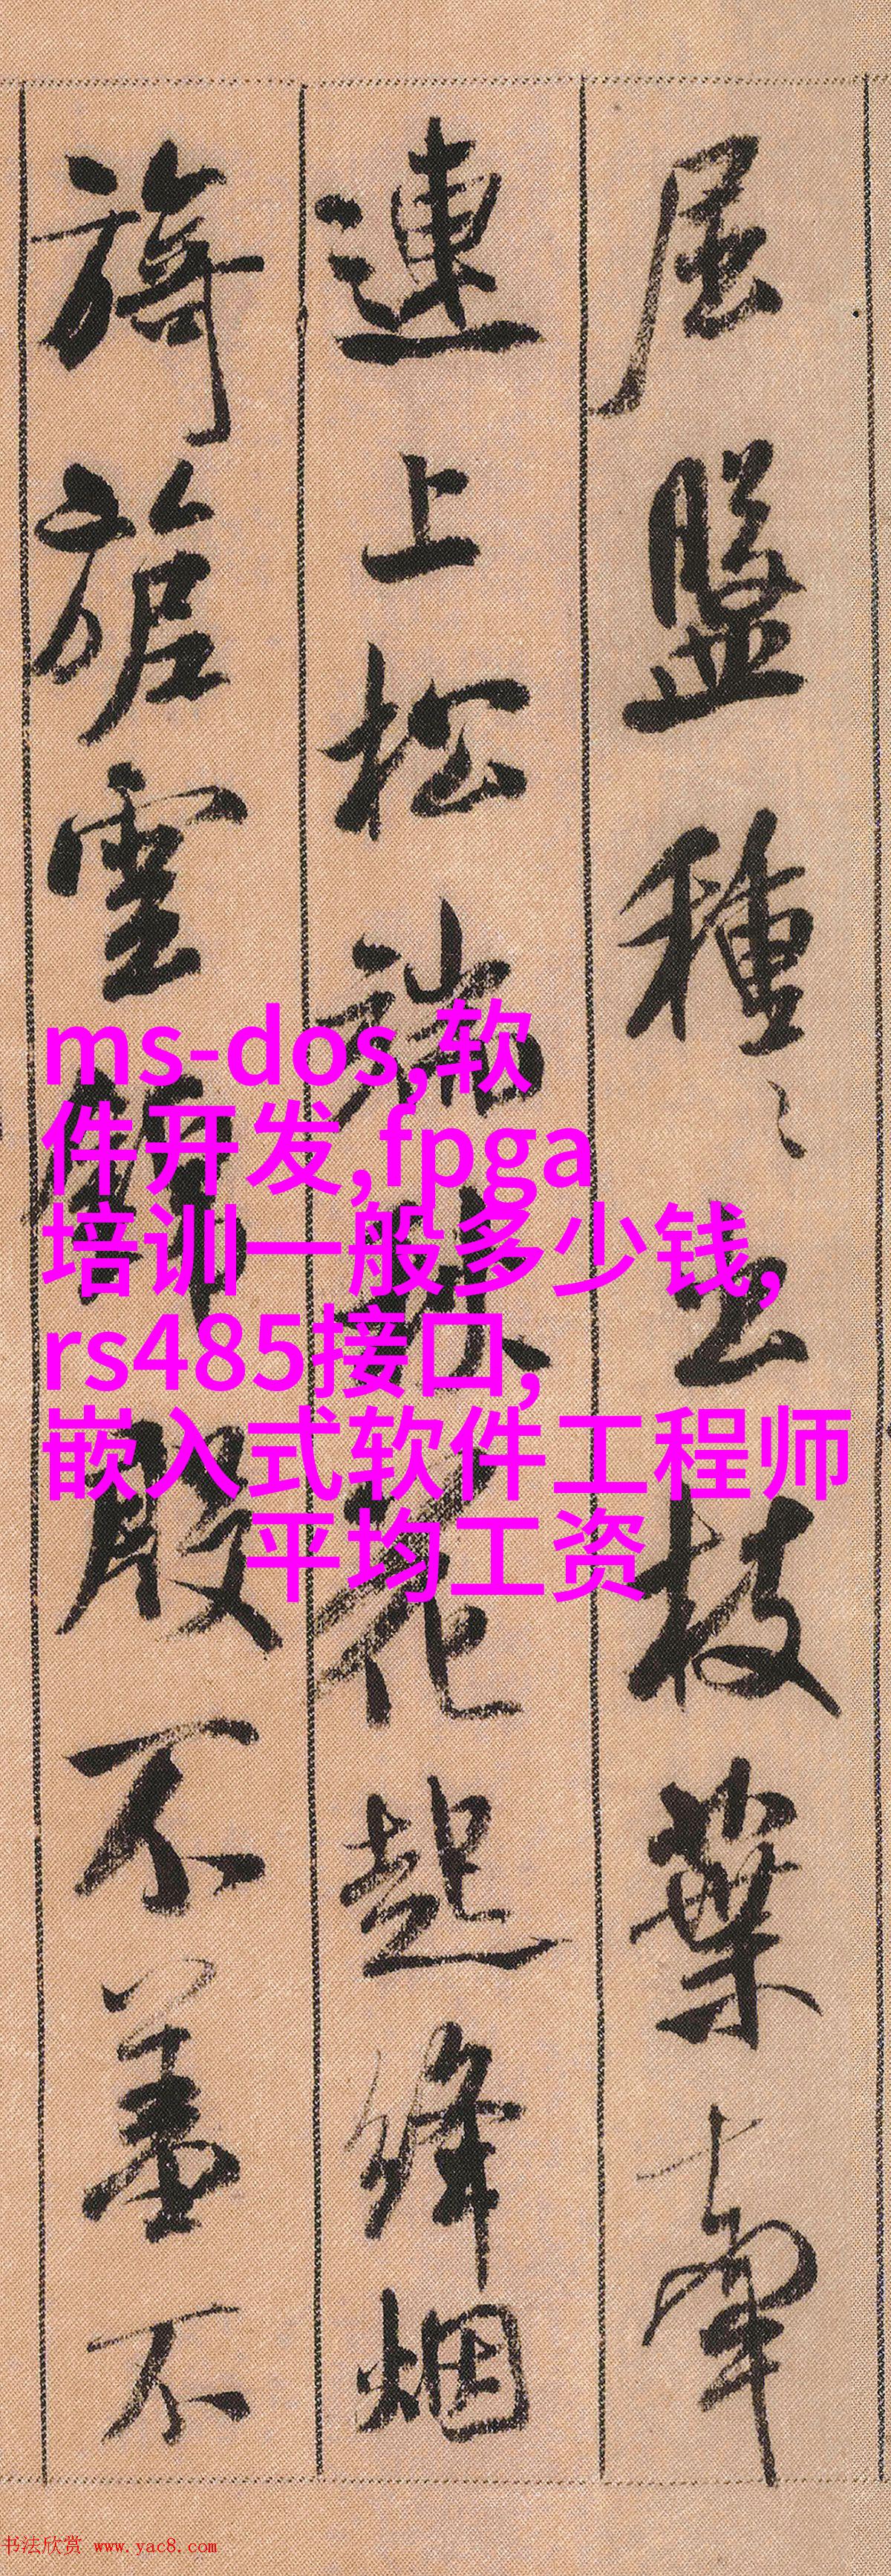 屈盤種〻出枝葉牽
連上松端秋花起绛烟
旖旎雲錦殷不羞不
ms-dos,软
件开发,fpga
培训一般多少钱,
rs485接口,
嵌入式软件工程师
平均工资
书法欣赏 www.yac8.com